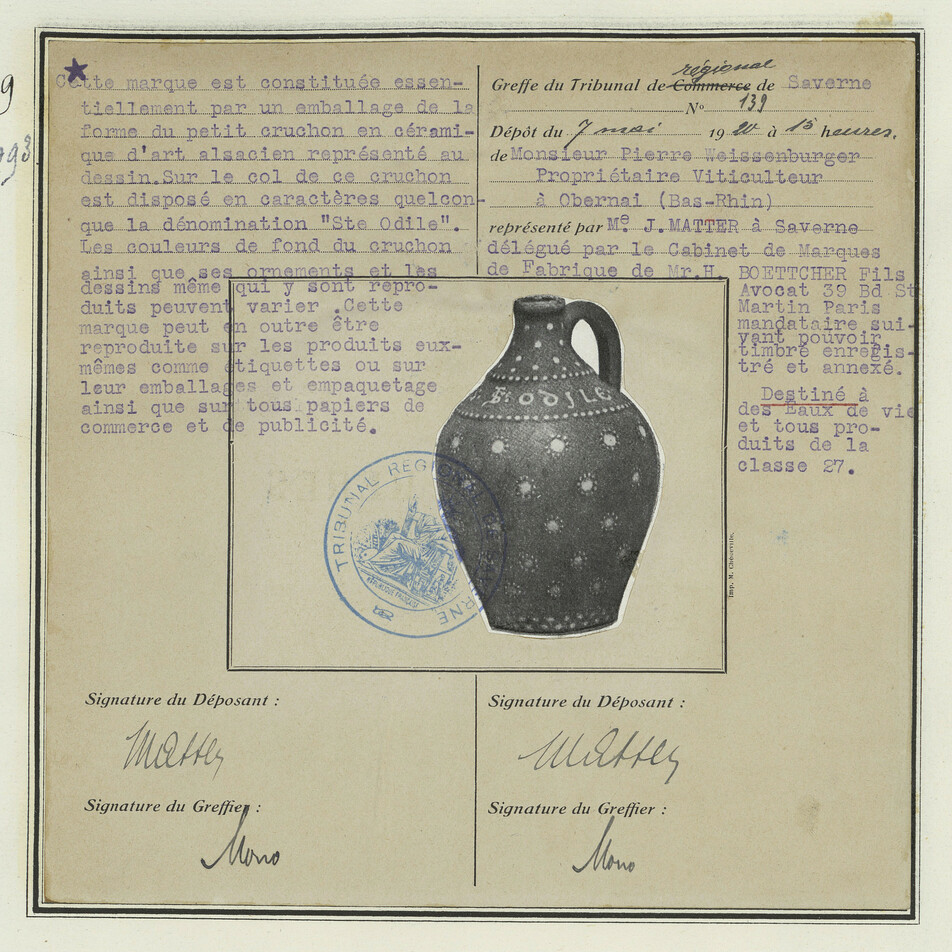 9
Cette marque est constituée essen-
tiellement par un emballage de la
forme du petit cruchon en cérami-
que d'art alsacien représenté au
dessin.Sur le col de ce cruchon
est disposé en caractères quelcon-
que la dénomination "Ste Odile".
Les couleurs de fond du cruchon
ainsi que ses ornements et les
dessins même qui y sont repro-
duits peuvent varier .Cette
marque peut en outre être
reproduite sur les produits eux-
mêmes comme étiquettes ou sur
leur emballages et empaquetage
ainsi que sur tous papiers de
commerce et de publicité.
régional
Greffe du Tribunal de Commerce de Saverne
No 139
Dépôt du 7 mai 1920 à 15 heures.
de Monsieur Pierre Weissenburger
Propriétaire Viticulteur
à Obernai (Bas-Rhin)
représenté par Me. J.MATTER à Saverne
délégué par le Cabinet de Marques
de Fabrique de Mr.H. BOETTCHER Fils
Avocat 39 Bd St
Martin Paris
mandataire sui-
vant pouvoir
timbré enregis-
tré et annexé.
Destiné à
des Eaux de vie
et tous pro-
duits de la
classe 27.
Ste ODILE
TRIBUNAL REGIONAL DE SAVERNE
REPUBLIQUE FRANÇAISE
Imp. M. Chénerville.
Signature du Déposant :
Matter
Signature du Greffier :
Mono
Signature du Déposant :
Matter
Signature du Greffier :
Mono